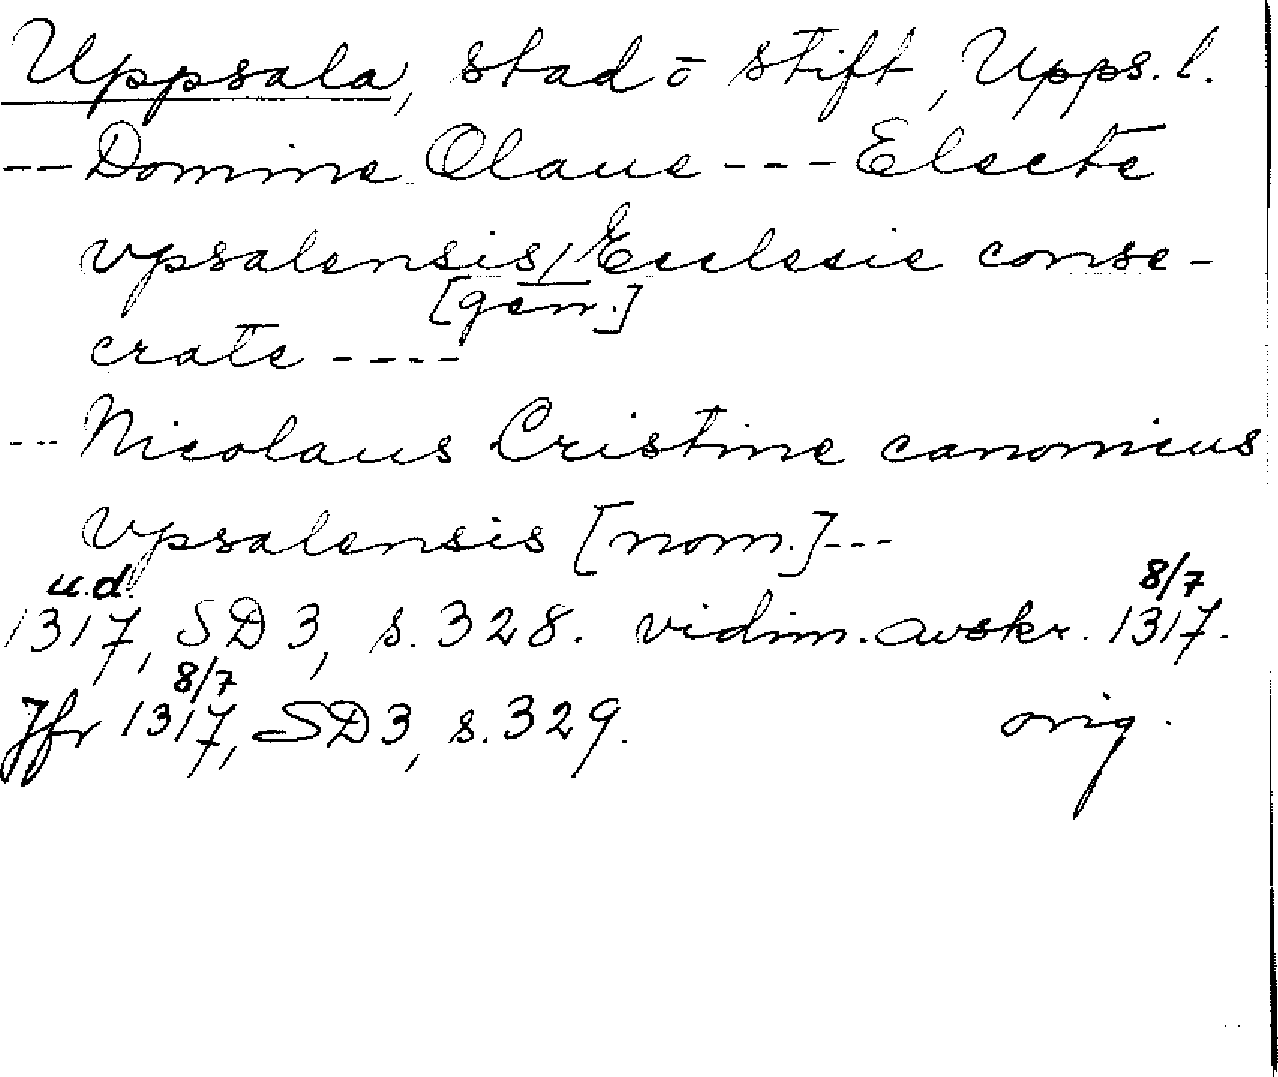 Uppsala, stad o stift, Upps. l.
-- Domine Olaue --- Electe
vpsalensis/Ecclesie conse-
[gen.]
crate ----
--- Nicolaus Cristine canonicus
vpsalensis [nom.]---
u.d. 8/7
1317, SD 3, s. 328. vidim. avskr. 1317.
8/7
Jfr 1317, SD 3, s. 329. orig.